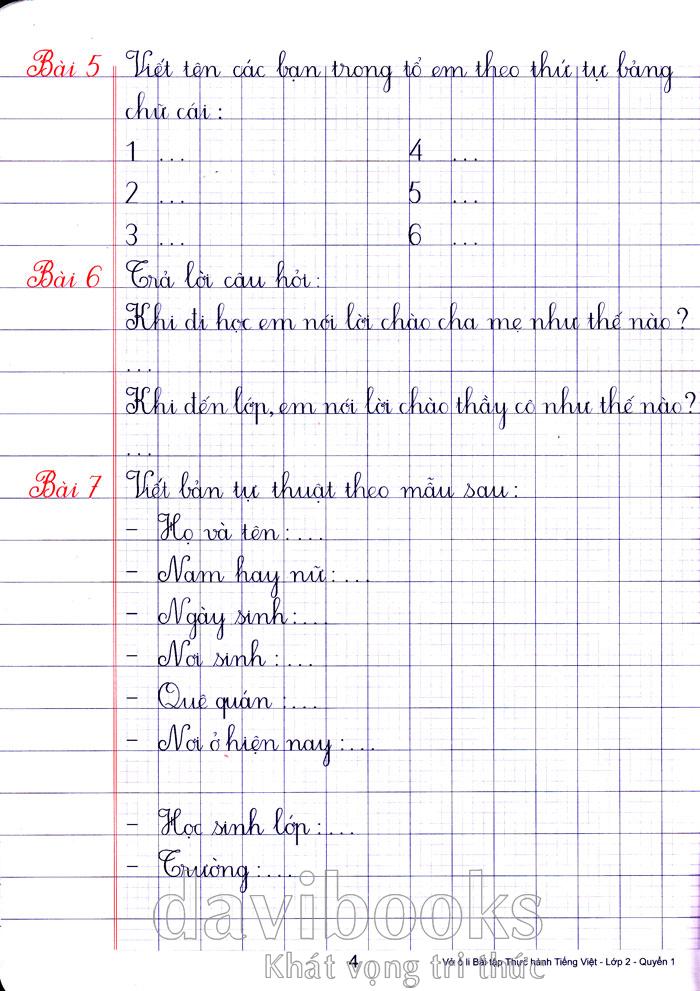 Bài 5 Viết tên các bạn trong tổ em theo thứ tự bảng
chữ cái :
1 ... 4 ...
2 ... 5 ...
3 ... 6 ...
Bài 6 Trả lời câu hỏi :
Khi đi học em nói lời chào cha mẹ như thế nào ?
...
Khi đến lớp, em nói lời chào thầy cô như thế nào ?
...
Bài 7 Viết bản tự thuật theo mẫu sau :
- Họ và tên : ...
- Nam hay nữ : ...
- Ngày sinh : ...
- Nơi sinh : ...
- Quê quán : ...
- Nơi ở hiện nay : ...
- Học sinh lớp : ...
- Trường : ...
davibooks
Khát vọng tri thức
4 Vở ô li Bài tập Thực hành Tiếng Việt - Lớp 2 - Quyển 1